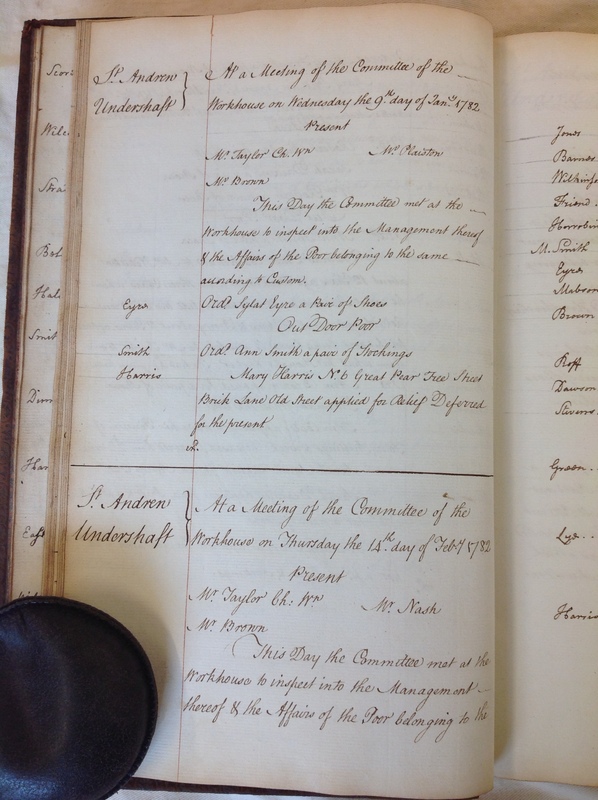 St. Andrew Undershaft } At a Meeting of the Committee of the
Workhouse on Wednesday the 9th. day of Jany. 1782
Present
Mr. Taylor Ch. Wn Mr. Plaistow
Mr. Brown
This Day the Committee met at the
Workhouse to inspect into the Management thereof
& the Affairs of the Poor belonging to the same
according to Custom.
Eyre Ord. Sylas Eyre a Pair of Shoes
Out Door Poor
Smith Ord. Ann Smith a pair of Stockings
Harris Mary Harris No. 6 Great Pear Tree Street
Brick Lane Old Street applied for Relief Deferred
for the present
St. Andrew Undershaft } At a Meeting of the Committee of the
Workhouse on Thursday the 14th. day of Feby 1782
Present
Mr. Taylor Ch: Wn Mr. Nash
Mr. Brown
This Day the Committee met at the
Workhouse to inspect into the Management
thereof & the Affairs of the Poor belonging to the
Jones
Barnes
Friend
M. Smith
Eyre
Brown
Roff
Dawson
Stevens
Green
Lye